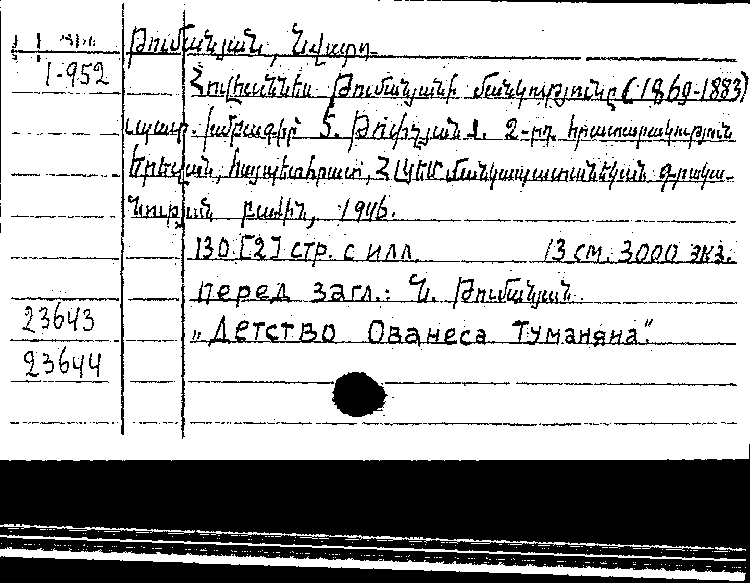 Թումանյան, Նվարդ
1-952
Հովհաննես Թումանյանի մանկությունը (1869-1883)
պատ. խմբագիր Տ. Թուխչյան 2-րդ հրատարակություն
Երևան, հայպետհրատ, ՀԼԿԵՄ մանկապատանեկան գրակա-
նության բաժին, 1946.
130 [2] стр. с илл. 13 см. 3000 экз.
перед загл.: Ն. Թումանյան
23643
„Детство Ованеса Туманяна".
23644